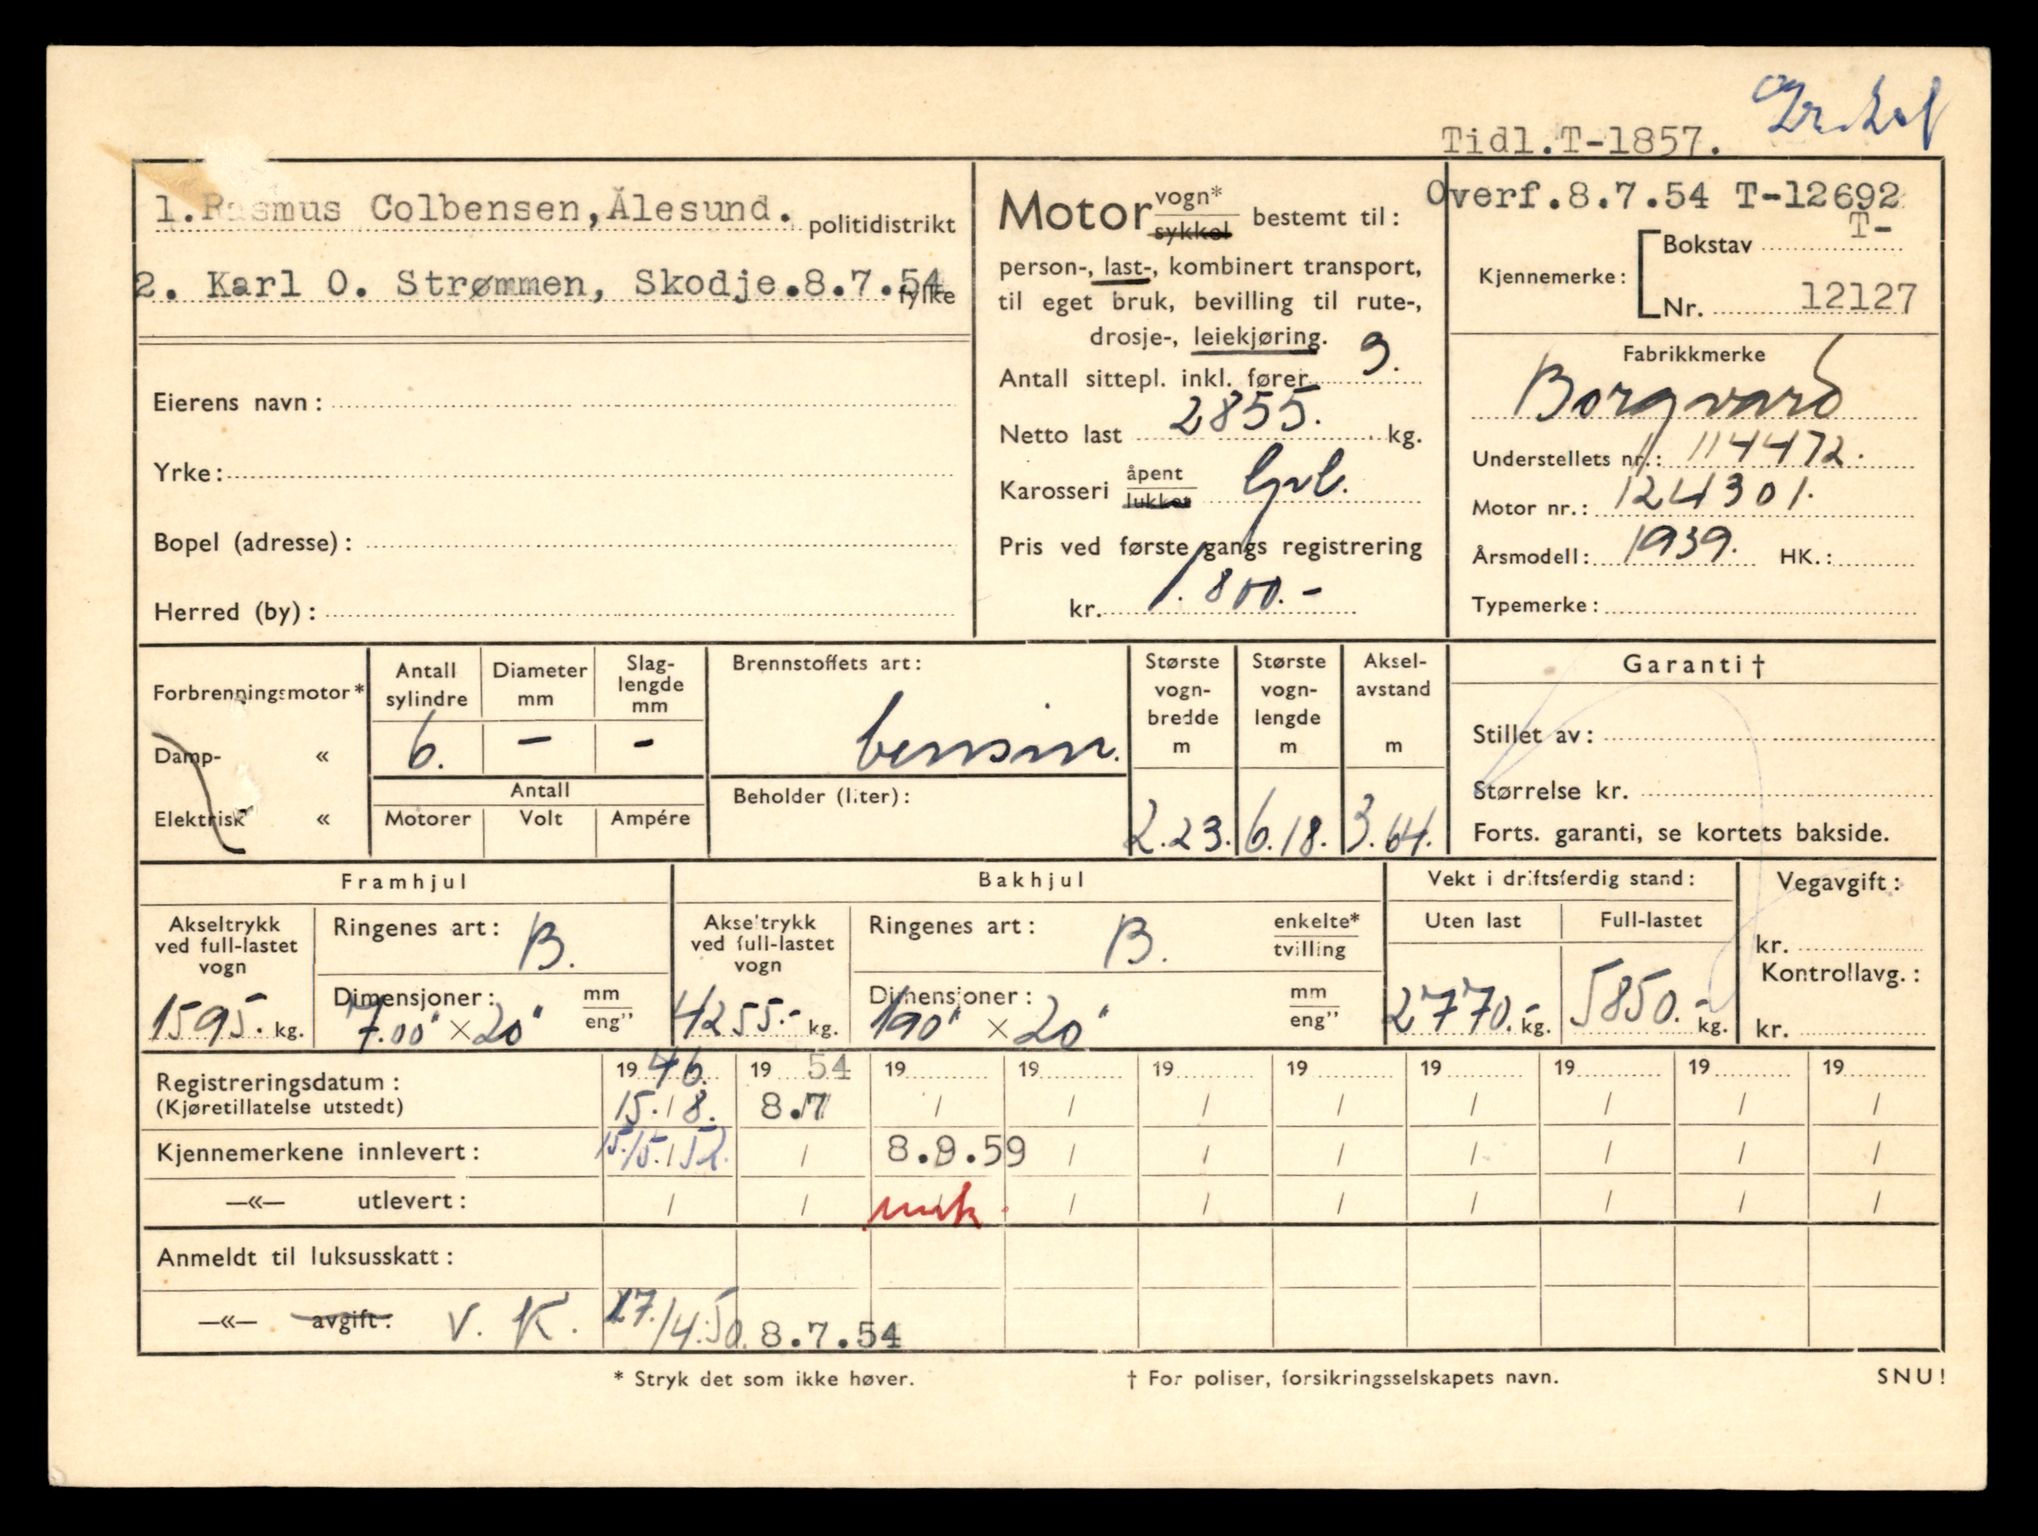 Tidl.T-1857.
1.Rasmus Colbensen,Ålesund. politidistrikt
2. Karl O. Strømmen, Skodje.8.7.54 fylke
Eierens navn:
Yrke:
Bopel (adresse):
Herred (by):
Motor vogn* sykkel bestemt til:
person-, last-, kombinert transport,
til eget bruk, bevilling til rute-,
drosje-, leiekjøring.
Antall sittepl. inkl. fører 3.
Netto last 2855. kg.
Karosseri åpent lukket
Pris ved første gangs registrering
kr. 1.800.-
Overf.8.7.54 T-12692
Kjennemerke: Bokstav T-
Nr. 12127
Fabrikkmerke
Borgvard
Understellets nr.: 114472.
Motor nr.: 124301.
Årsmodell: 1939. HK.:
Typemerke:
Forbrenningsmotor*
Damp- «
Elektrisk «
Antall sylindre
6.
Diameter mm
-
Slag-lengde mm
-
Antall
Motorer Volt Ampére
Brennstoffets art:
bensin.
Beholder (liter):
Største vogn-bredde m
2.23.
Største vogn-lengde m
6.18.
Aksel-avstand m
3.64.
Garanti †
Stillet av:
Størrelse kr.
Forts. garanti, se kortets bakside.
Framhjul
Akseltrykk ved full-lastet vogn
1595.- kg.
Ringenes art: B.
Dimensjoner: mm eng"
7.00" × 20"
Bakhjul
Akseltrykk ved full-lastet vogn
4255.- kg.
Ringenes art: B. enkelte* tvilling
Dimensjoner: mm eng"
190" × 20"
Vekt i driftsferdig stand:
Uten last Full-lastet
2770.- kg. 5850.- kg.
Vegavgift:
kr.
Kontrollavg.:
kr.
Registreringsdatum: 19 46. 19 54 19 19 19 19 19 19 19 19
(Kjøretillatelse utstedt) 15./8. 8.7 / / / / / / / /
Kjennemerkene innlevert: 15./5./52. / 8.9.59 / / / / / / /
—«— utlevert: / / / / / / / / /
Anmeldt til luksusskatt:
—«— avgift: V. K. 17./4.50. 8.7.54
* Stryk det som ikke høver. † For poliser, forsikringsselskapets navn. SNU!